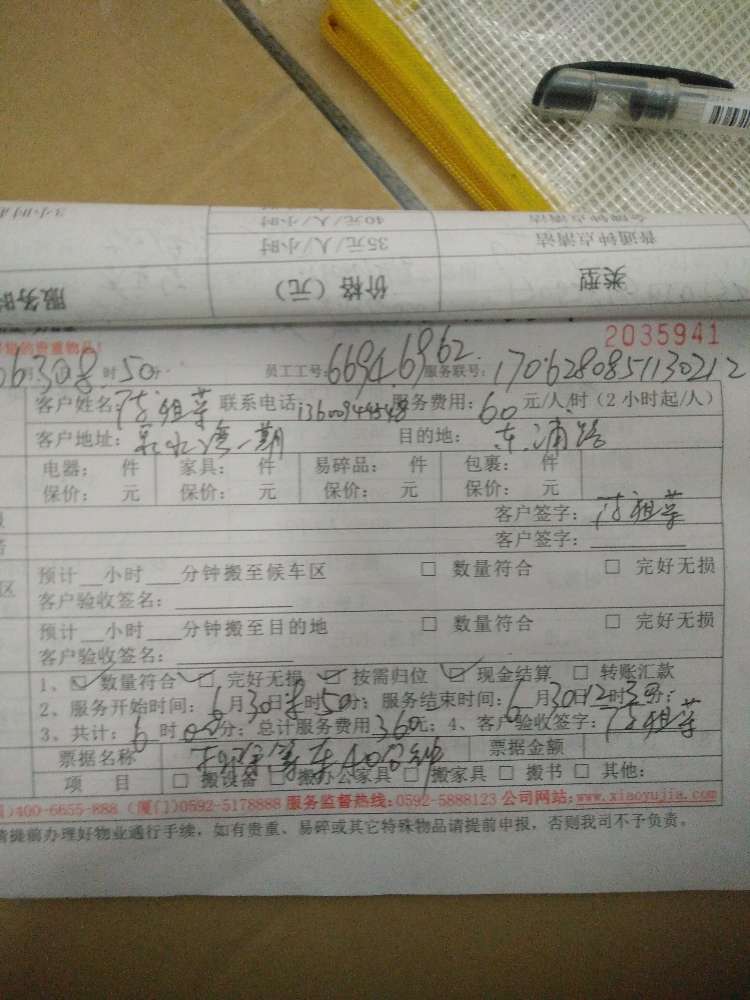 3小时
40元/人/小时
35元/人/小时 普通钟点清洁
服务时 价格（元） 类型
的贵重物品！ 2035941
06.30 8时50分 员工工号: 6694.6962 服务联号: 1706280851130212
客户姓名: 联系电话: 服务费用: 60 元/人/时（2小时起/人）
客户地址: 一期 目的地: 东浦路
电器： 件 家具： 件 易碎品： 件 包裹： 件
保价： 元 保价： 元 保价： 元 保价： 元
客户签字：
客户签字：
区 预计__小时___分钟搬至候车区 □ 数量符合 □ 完好无损
客户验收签名：
预计__小时___分钟搬至目的地 □ 数量符合 □ 完好无损
客户验收签名：
1、☑ 数量符合 ☑ 完好无损 ☑ 按需归位 ☑ 现金结算 □ 转账汇款
2、服务开始时间：6月30日8时50分；服务结束时间：6月30日12时 分；
3、共计：6时 分；总计服务费用360元；4、客户验收签字：
票据名称 等车40分钟 票据金额
项 目 □ 搬设备 □ 搬办公家具 □ 搬家具 □ 搬书 □ 其他：
)400-6655-888 (厦门)0592-5178888 服务监督热线:0592-5888123 公司网站:www.xiaoyujia.com
请提前办理好物业通行手续，如有贵重、易碎或其它特殊物品请提前申报，否则我司不予负责。